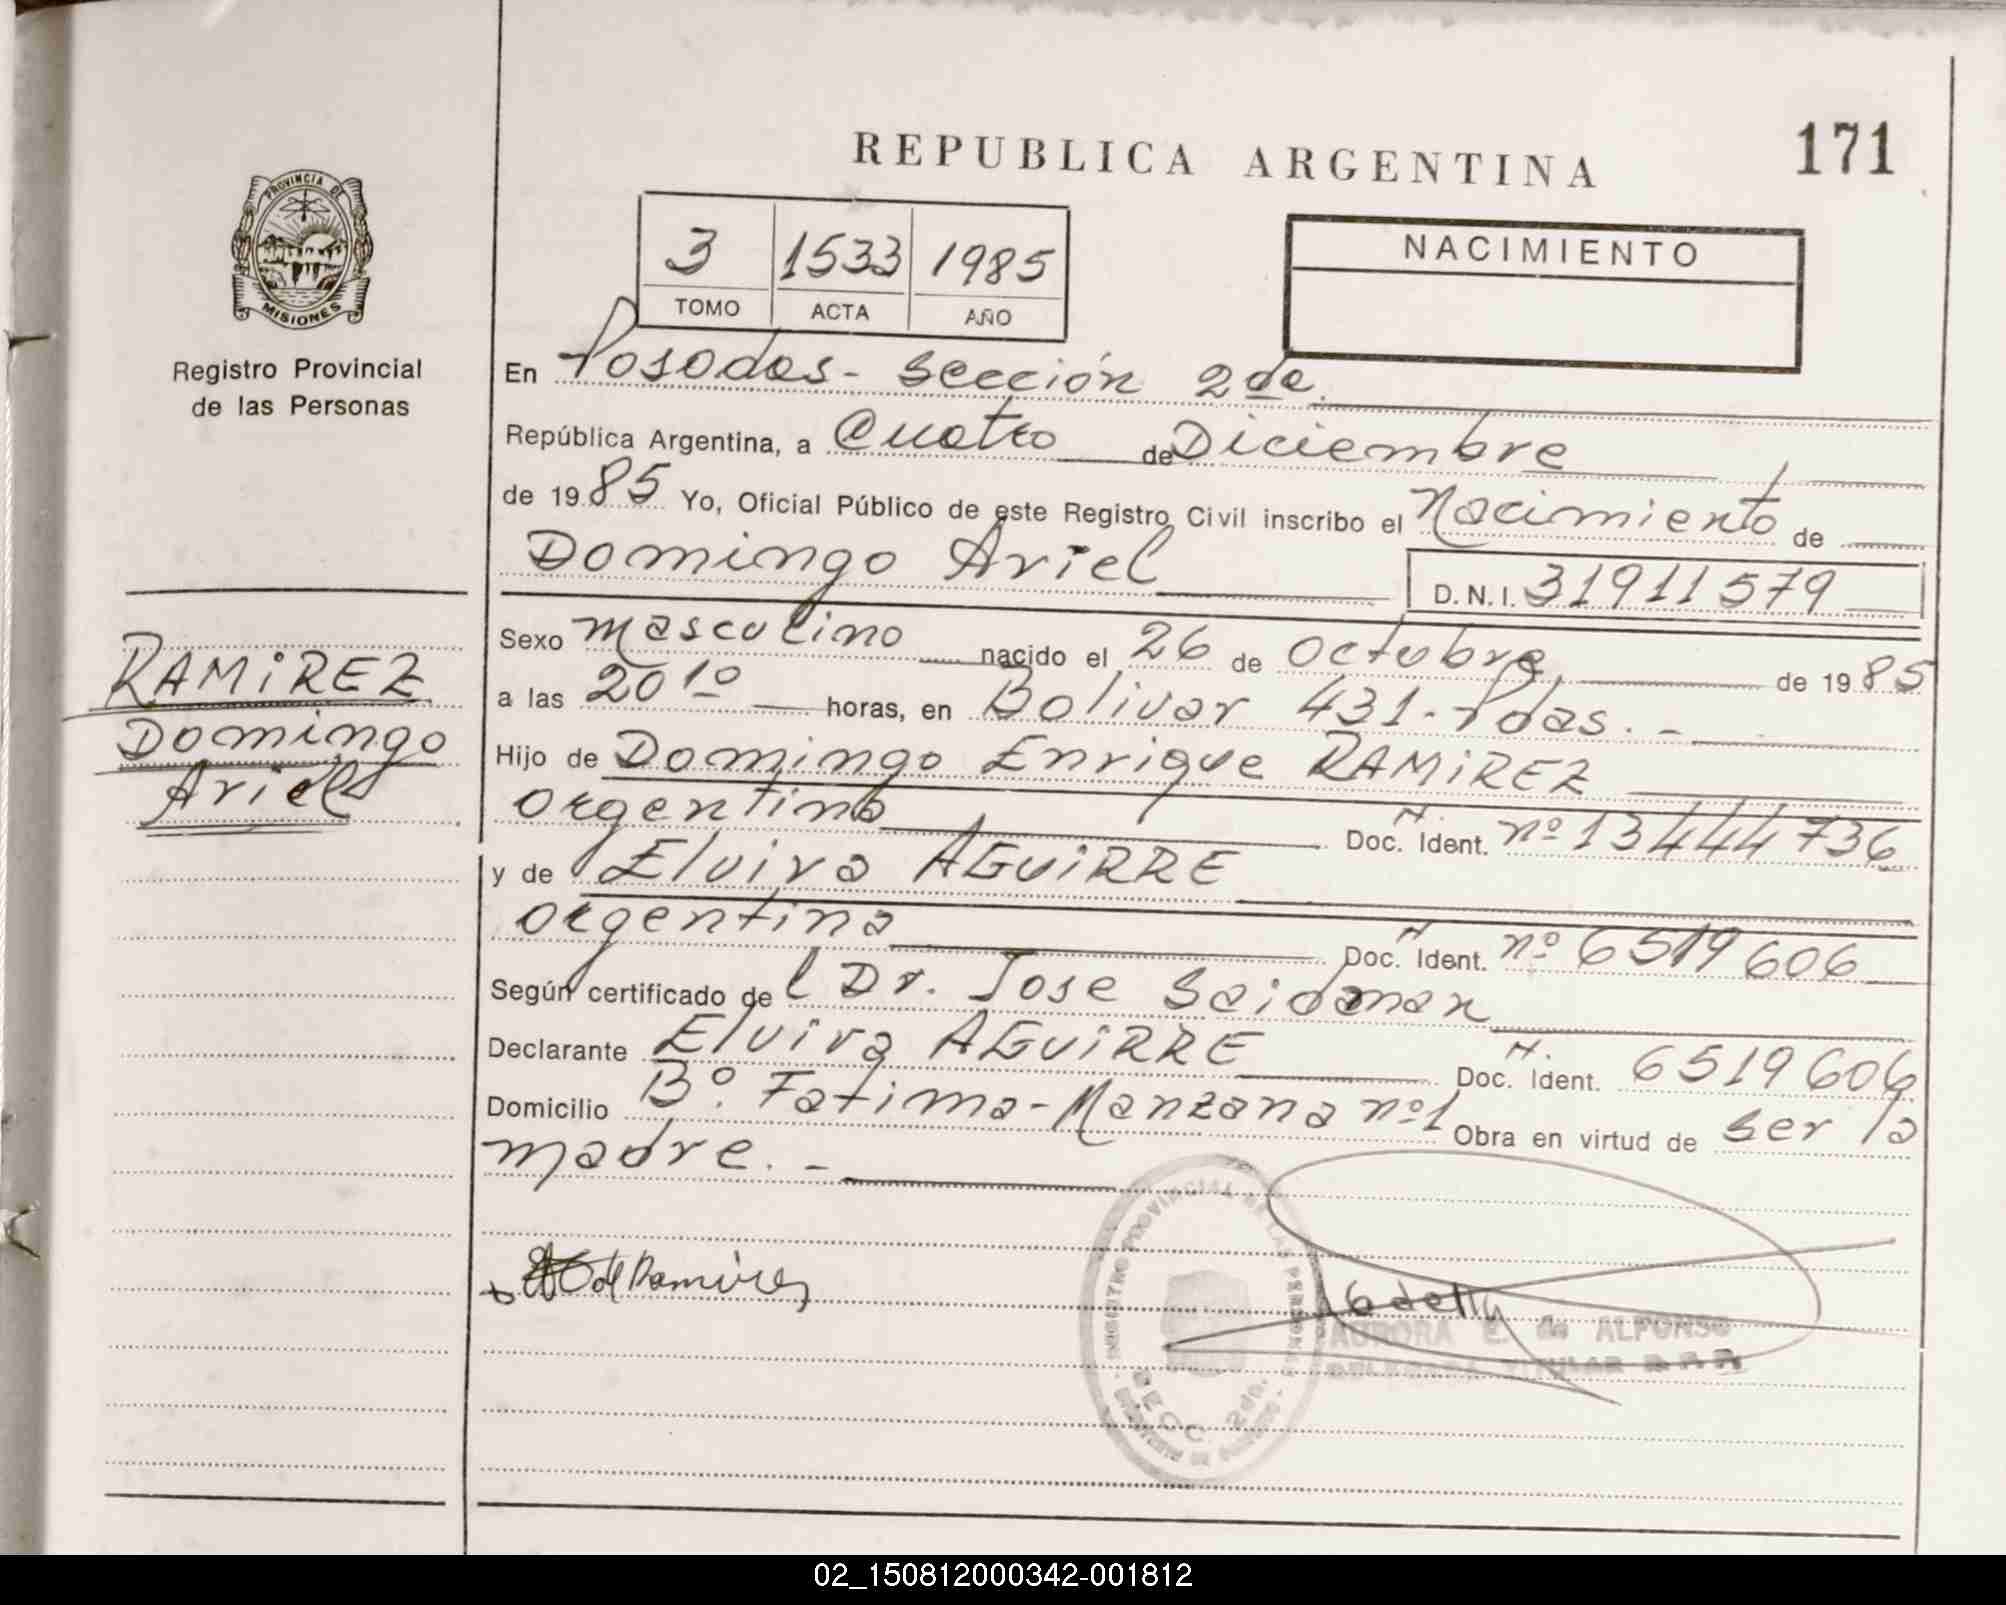 REPUBLICA ARGENTINA
171
PROVINCIA DE
MISIONES
Registro Provincial
de las Personas
3 1533 1985
TOMO ACTA AÑO
NACIMIENTO
En Posadas - Sección 2da.
República Argentina, a Cuatro de Diciembre
de 1985 Yo, Oficial Público de este Registro Civil inscribo el Nacimiento de
Domingo Ariel D.N.I. 31911579
RAMIREZ
Domingo
Ariel
Sexo masculino nacido el 26 de Octubre de 1985
a las 20 10 horas, en Bolivar 431 - Pdas. -
Hijo de Domingo Enrique RAMIREZ
argentino Doc. Ident. nº 13444736
y de Elvira AGUIRRE
argentina Doc. Ident. nº 6519606
Según certificado del Dr. Jose Saidman
Declarante Elvira AGUIRRE Doc. Ident. 6519606
Domicilio Bº. Fatima - Manzana nº1 Obra en virtud de ser la
madre. -
de Ramirez
REGISTRO PROVINCIAL DE LAS PERSONAS
SECC. 2da.
AURORA E. de ALFONSO
DELEGADA TITULAR
02_150812000342-001812